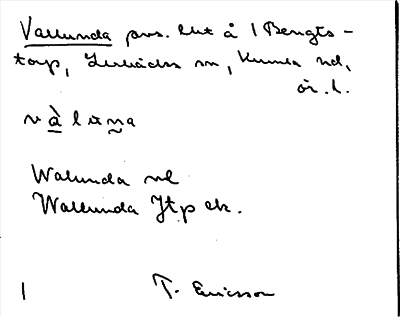 Vallunda pvs. lht å 1 Bengts-
torp, Lerbäcks sn, Kumla hd,
ör. l.
v à l ɯ n a
Walunda
Wallunda Jtp ek.
1 T. Ericsson